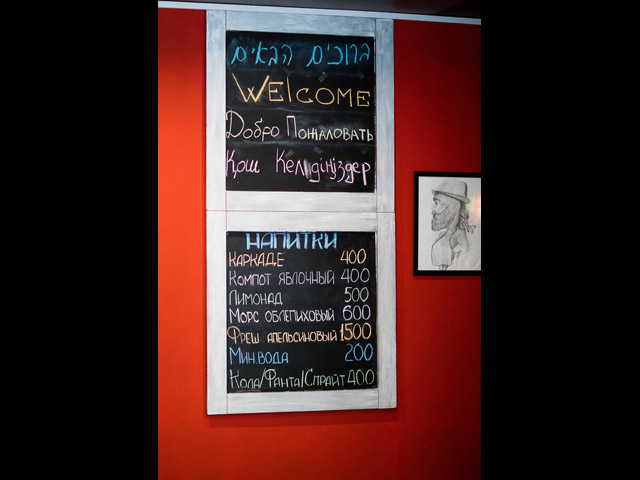 ברוכים הבאים
WElcOME
Добро Пожаловать
Қош Келдіңіздер
НАПИТКИ
КАРКАДЕ 400
Компот яблочный 400
Лимонад 500
Морс облепиховый 600
Фреш апельсиновый 1500
Мин вода 200
Кола/Фанта/Спрайт 400